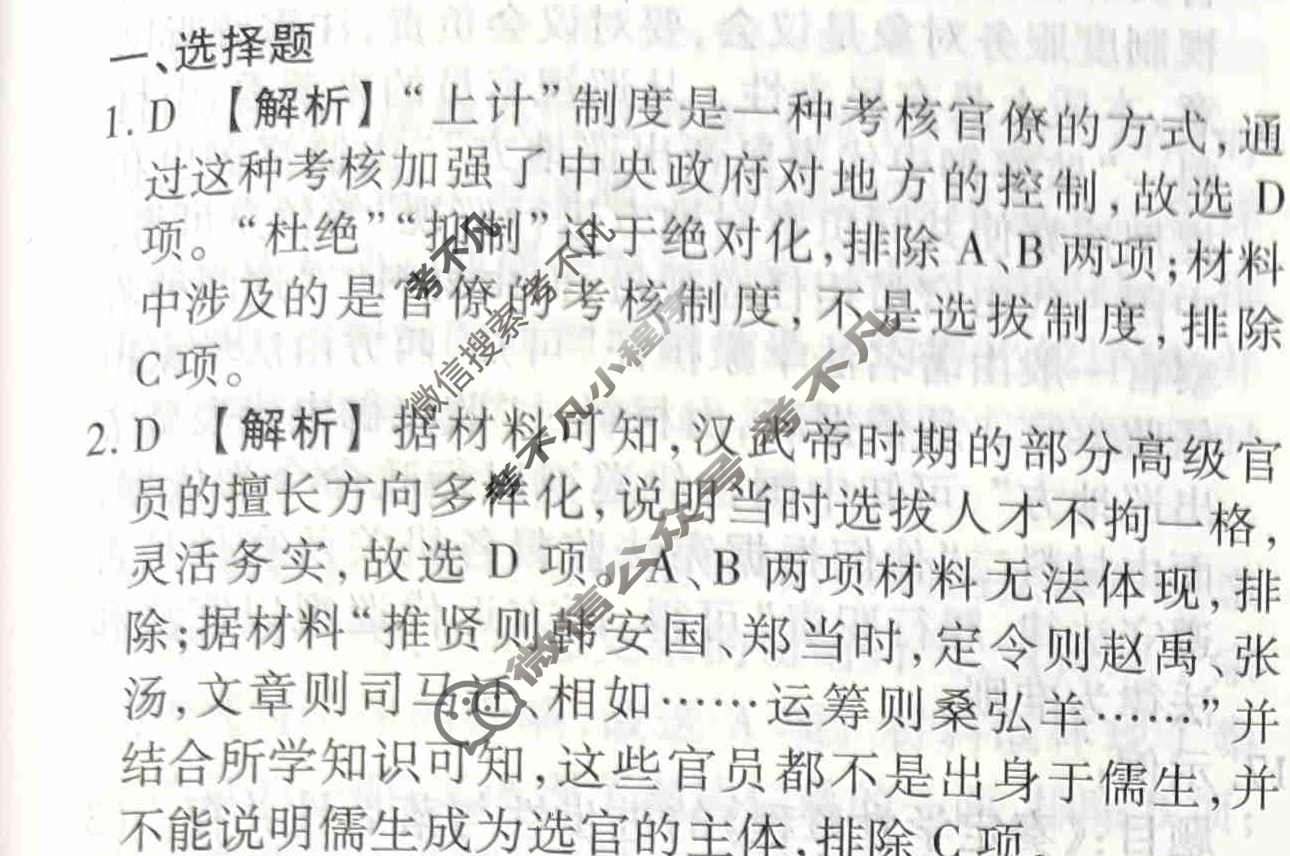 一、选择题
1. D 【解析】“上计”制度是一种考核官僚的方式,通
过这种考核加强了中央政府对地方的控制,故选 D
项。“杜绝”“抑制”过于绝对化,排除 A、B 两项;材料
中涉及的是官僚的考核制度,不是选拔制度,排除
C 项。
2. D 【解析】据材料可知,汉武帝时期的部分高级官
员的擅长方向多样化,说明当时选拔人才不拘一格,
灵活务实,故选 D 项。A、B 两项材料无法体现,排
除;据材料“推贤则韩安国、郑当时,定令则赵禹、张
汤,文章则司马迁、相如……运筹则桑弘羊……”并
结合所学知识可知,这些官员都不是出身于儒生,并
不能说明儒生成为选官的主体,排除 C 项。
考不凡
微信搜索考不凡
考不凡小程序
微信公众号 考不凡